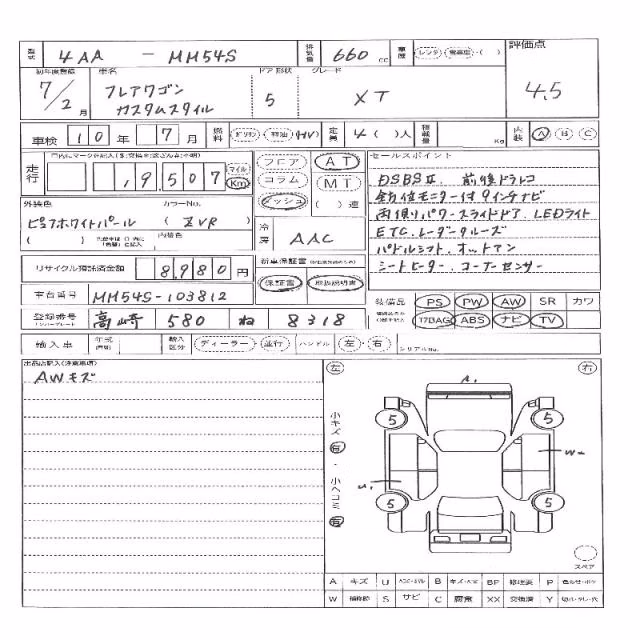 型式 4AA - MM54S 排気量 660 cc 車歴 レンタ 評価点
初年度登録 車名 ドア 形状 グレード
7/2月 フレアワゴン カスタムスタイル 5 XT 4.5
車検 10年 7月 燃料 ガソリン 軽油 (HV) 定員 4( )人 積載量 Kg 内装 A B C
走行 1,9,507 マイル Km フロア AT セールスポイント
コラム MT DSBSⅡ. 前後ドラレコ
外装色 カラーNo. ダッシュ ( )速 全方位モニター付9インチナビ
ピュアホワイトパール (ZVR) 冷房 AAC 両側パワースライドドア. LEDライト
( ) 内装色 ETC. レーダークルーズ
リサイクル預託済金額 8,980円 新車保証書 パドルシフト. オットマン
車台番号 MM54S-103812 保証書 取扱説明書 シートヒーター. コーナーセンサー
装備品 PS PW AW SR カワ
登録番号 高崎 580 ね 8318 エアBAG ABS ナビ TV
輸入車 年式 輸入区分 ディーラー 並行 ハンドル 左・右 シリアルNo.
出品店記入(注意事項) 左 右
AWキズ
A
小キズ 有・小ヘコミ 有
5 5
W
U
5 5
スペア
A キズ U B BP 修理要 P
W 補修跡 S サビ C 腐食 XX 交換済 Y